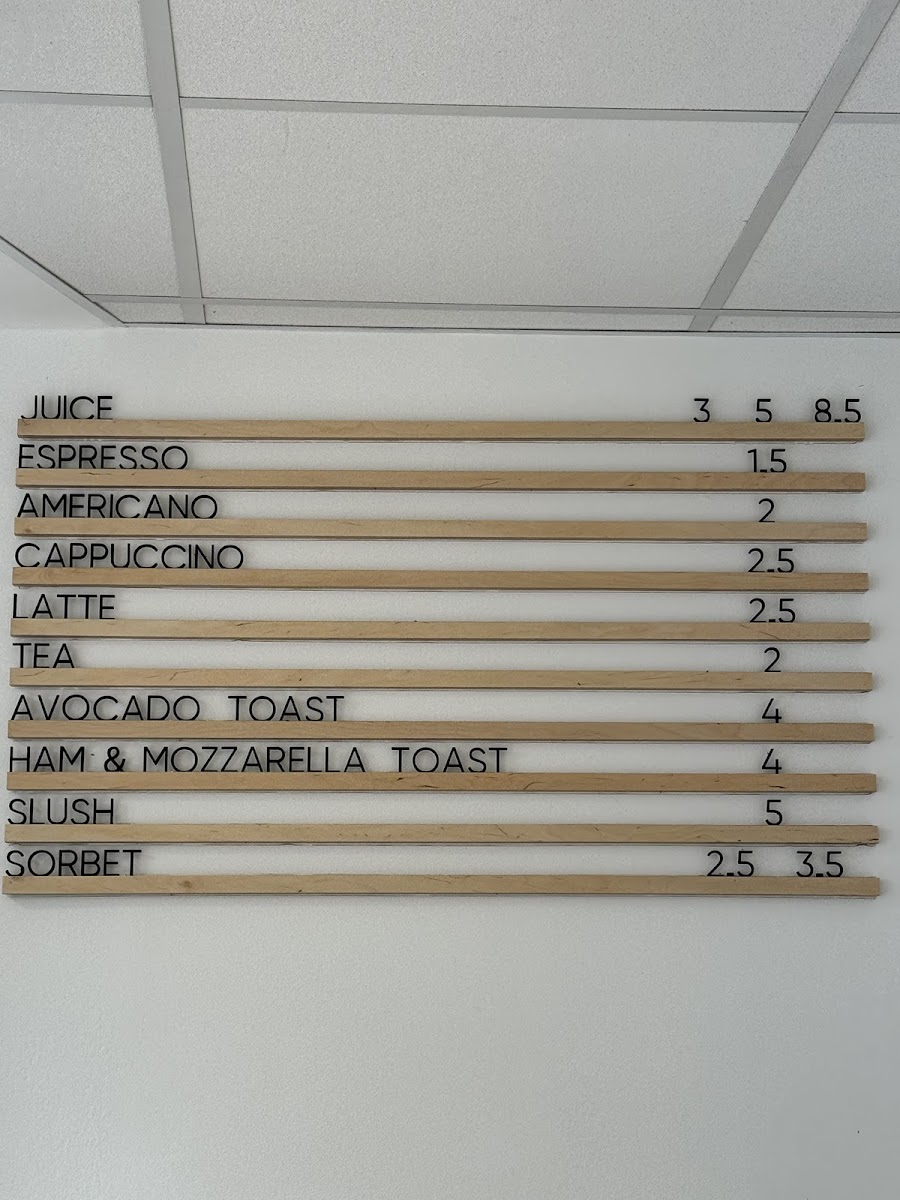 JUICE 3 5 8.5
ESPRESSO 1.5
AMERICANO 2
CAPPUCCINO 2.5
LATTE 2.5
TEA 2
AVOCADO TOAST 4
HAM & MOZZARELLA TOAST 4
SLUSH 5
SORBET 2.5 3.5